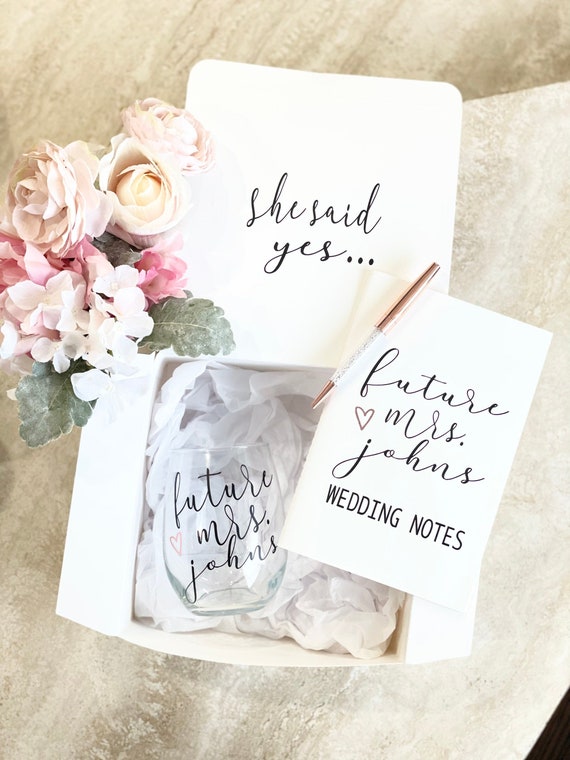 she said
yes...
future
mrs.
johns
WEDDING NOTES
future
mrs.
johns